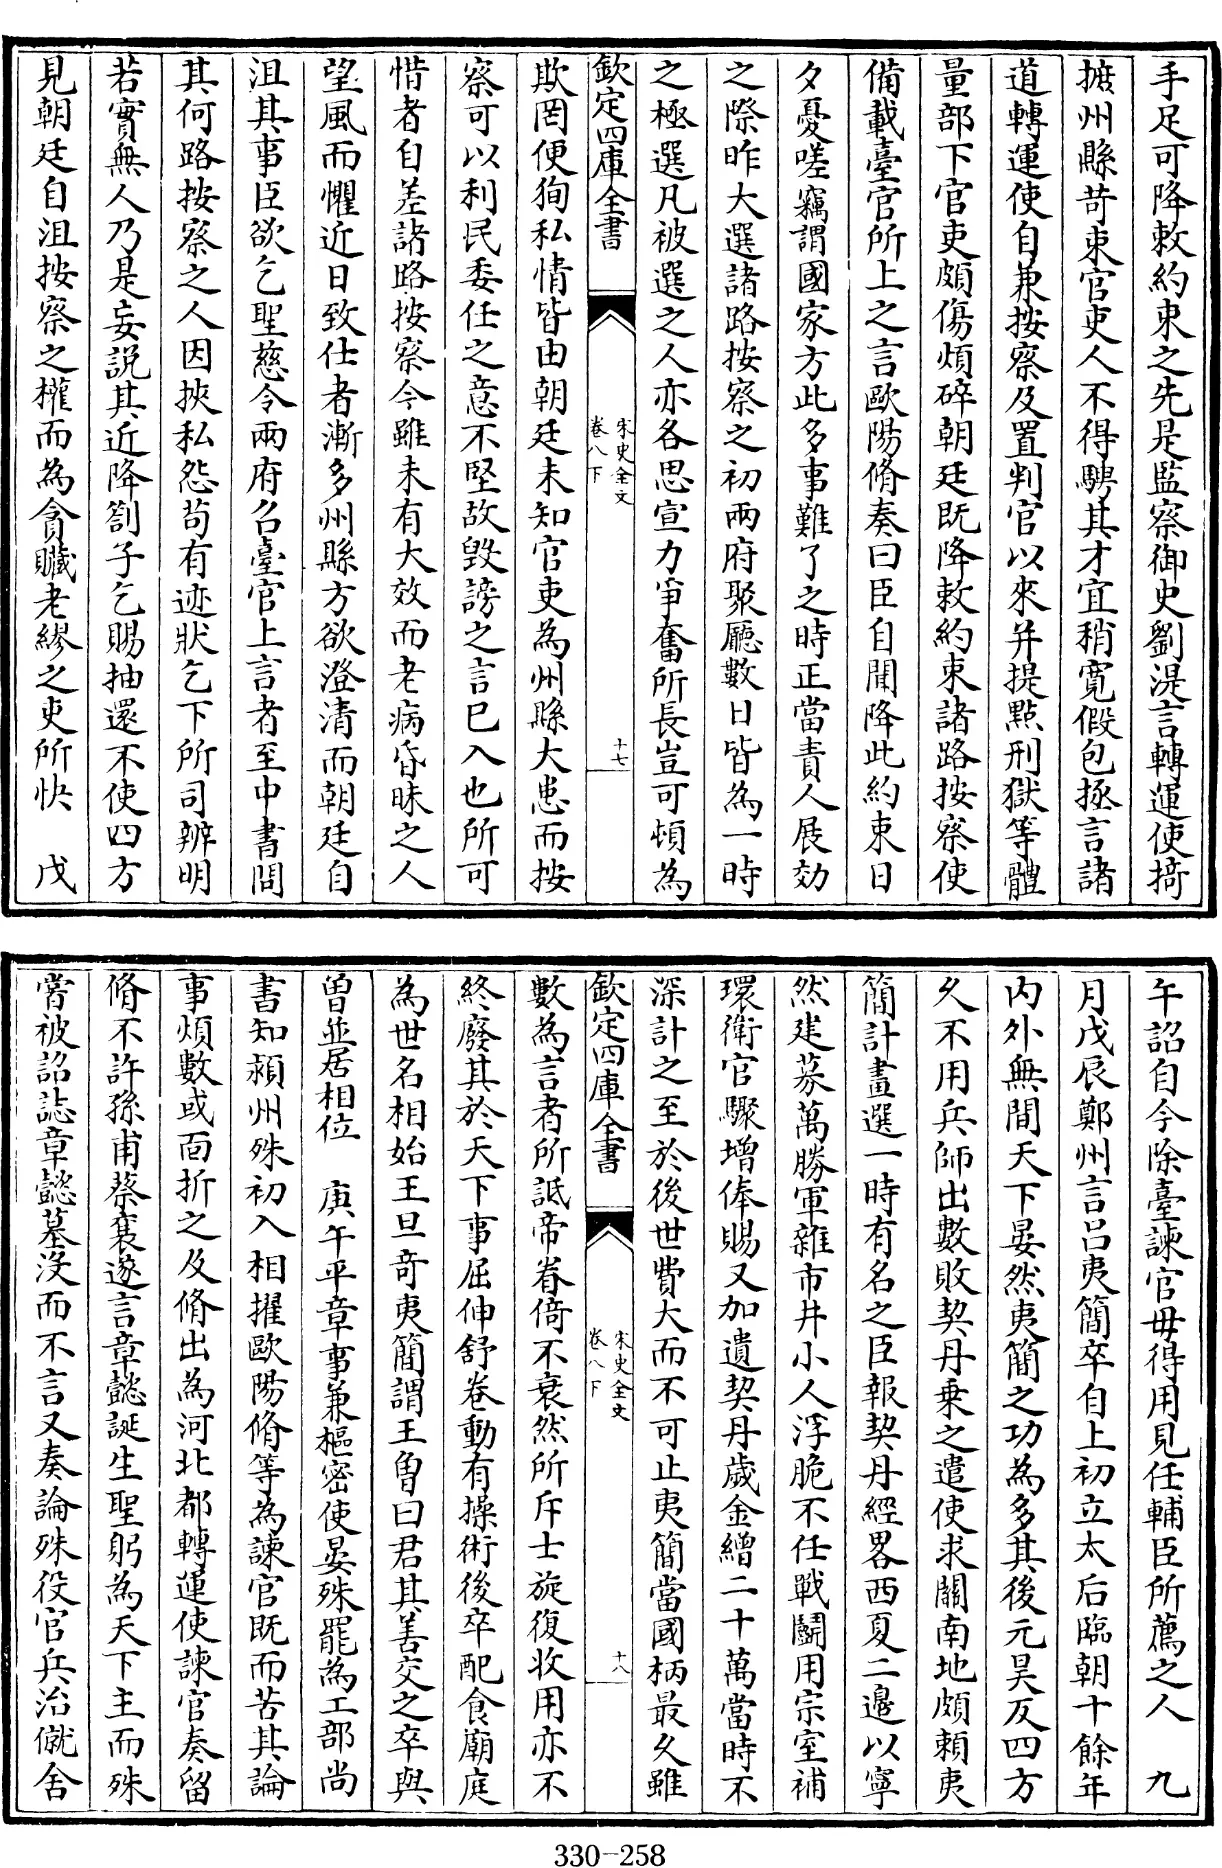 手足可降敕約束之先是監察御史劉湜言轉運使掎
摭州縣苛束官吏人不得騁其才宜稍寬假包拯言諸
道轉運使自兼按察及置判官以來并提點刑獄等體
量部下官吏頗傷煩碎朝廷既降敕約束諸路按察使
備載臺官所上之言歐陽脩奏曰臣自聞降此約束日
夕憂嗟竊謂國家方此多事難了之時正當責人展効
之際昨大選諸路按察之初兩府聚廳數日皆為一時
之極選凡被選之人亦各思宣力爭奮所長豈可頓為
欽定四庫全書
宋史全文
卷八下
十七
欺罔便狥私情皆由朝廷未知官吏為州縣大患而按
察可以利民委任之意不堅故毀謗之言已入也所可
惜者自差諸路按察今雖未有大效而老病昏昧之人
望風而懼近日致仕者漸多州縣方欲澄清而朝廷自
沮其事臣欲乞聖慈令兩府召臺官上言者至中書問
其何路按察之人因挾私怨苟有迹狀乞下所司辨明
若實無人乃是妄說其近降劄子乞賜抽還不使四方
見朝廷自沮按察之權而為貪贓老繆之吏所快　戊
午詔自今除臺諫官毋得用見任輔臣所薦之人　九
月戊辰鄭州言呂夷簡卒自上初立太后臨朝十餘年
內外無間天下晏然夷簡之功為多其後元昊反四方
久不用兵師出數敗契丹乘之遣使求關南地頗頼夷
簡計畫選一時有名之臣報契丹經畧西夏二邊以寧
然建募萬勝軍雜市井小人浮脆不任戰鬭用宗室補
環衛官驟增俸賜又加遺契丹歲金繒二十萬當時不
深計之至於後世費大而不可止夷簡當國柄最久雖
欽定四庫全書
宋史全文
卷八下
十八
數為言者所詆帝眷倚不衰然所斥士旋復收用亦不
終廢其於天下事屈伸舒卷動有操術後卒配食廟庭
為世名相始王旦奇夷簡謂王曾曰君其善交之卒與
曽並居相位　庚午平章事兼樞密使晏殊罷為工部尚
書知潁州殊初入相擢歐陽脩等為諫官既而苦其論
事煩數或面折之及脩出為河北都轉運使諫官奏留
脩不許孫甫蔡襄遂言章懿誕生聖躬為天下主而殊
嘗被詔誌章懿墓沒而不言又奏論殊役官兵治僦舍
330-258